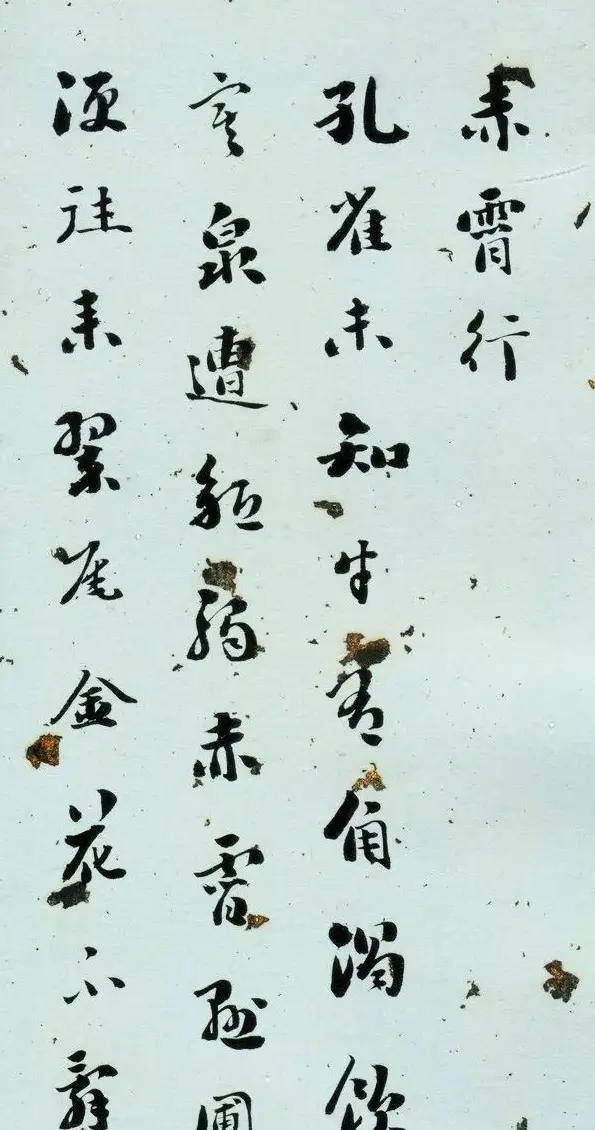 赤霄行
孔雀未知牛有角渴飲
寒泉遭觝觸赤霄縣圃
湏往来翠尾金花不辭